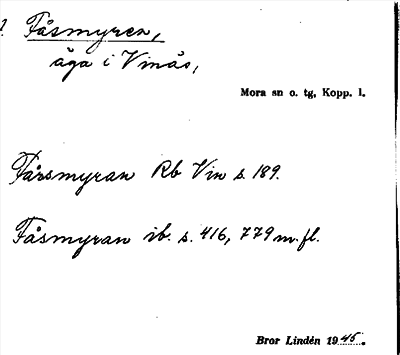 Fåsmyren,
äga i Vinäs,
Mora sn o. tg. Kopp. l.
Fårsmyran Rb Vin s. 189.
Fåsmyran ib. s. 416, 779 m. fl.
Bror Lindén 1945.